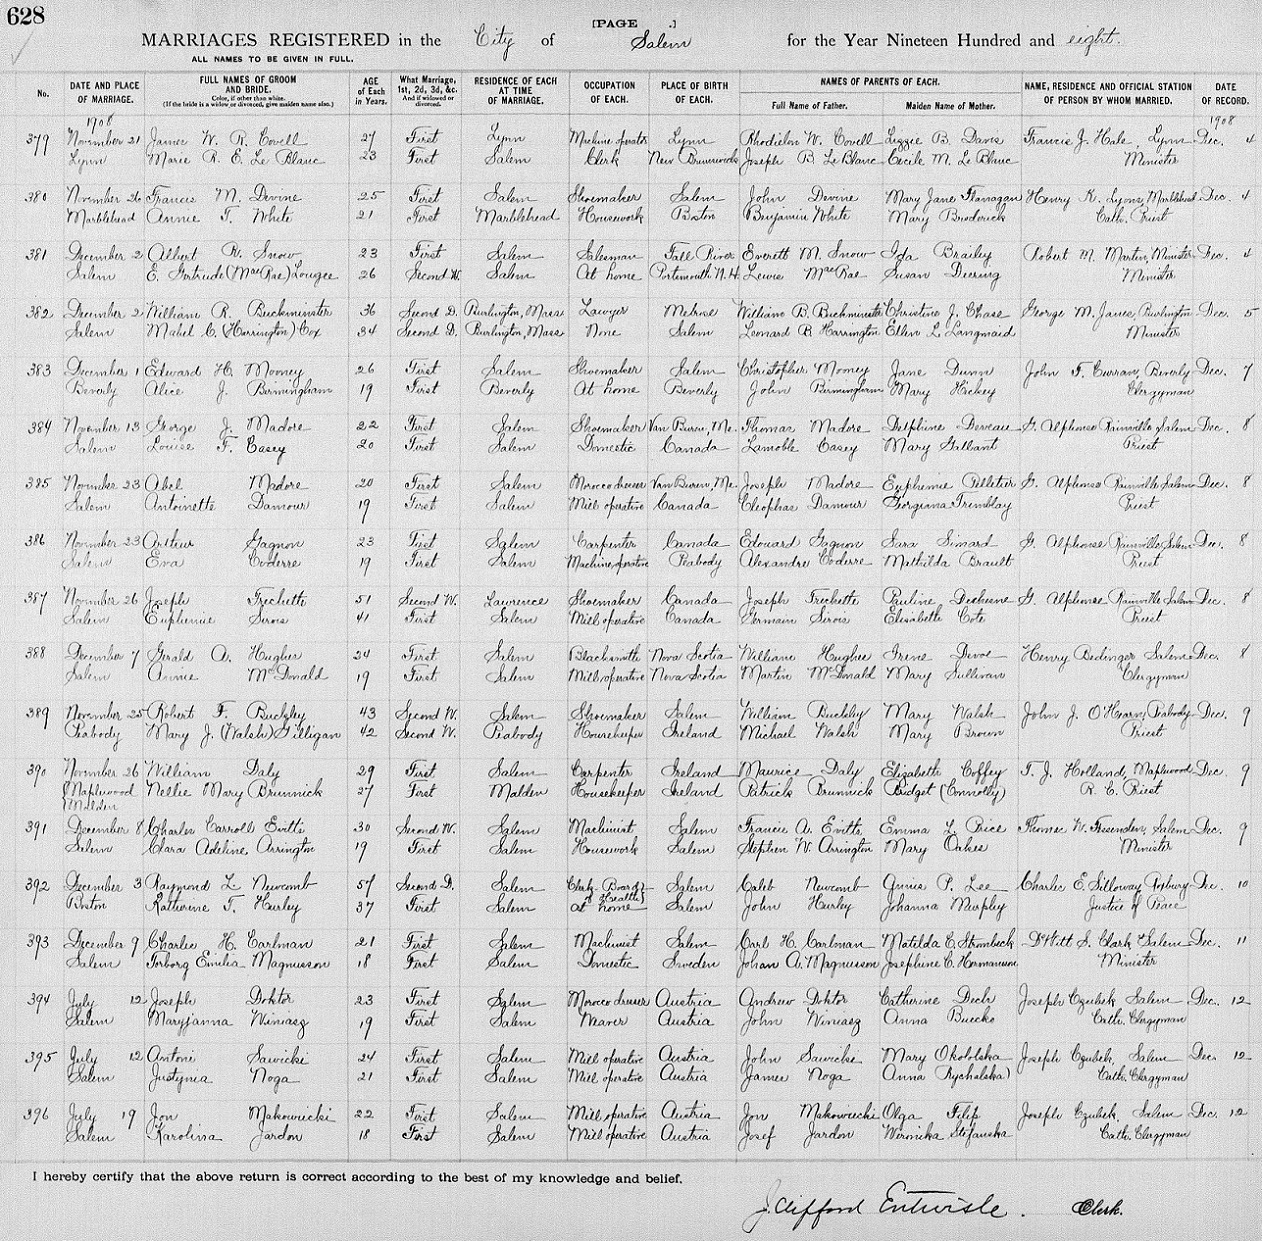 628
[PAGE .]
MARRIAGES REGISTERED in the City of Salem for the Year Nineteen Hundred and eight.
ALL NAMES TO BE GIVEN IN FULL.
No. | DATE AND PLACE OF MARRIAGE. | FULL NAMES OF GROOM AND BRIDE. Color, if other than white. (If the bride is a widow or divorced, give maiden name also.) | AGE of Each in Years. | What Marriage, 1st, 2d, 3d, &c. And if widowed or divorced. | RESIDENCE OF EACH AT TIME OF MARRIAGE. | OCCUPATION OF EACH. | PLACE OF BIRTH OF EACH. | NAMES OF PARENTS OF EACH. Full Name of Father. Maiden Name of Mother. | NAME, RESIDENCE AND OFFICIAL STATION OF PERSON BY WHOM MARRIED. | DATE OF RECORD.
1908 1908
379 November 21 James W. R. Covell 27 First Lynn Machine operator Lynn W. Covell Lizzie B. Davis Francis J. Hale, Lynn Dec. 4
Lynn Marie R. E. Le Blanc 23 First Salem Clerk New Brunswick Joseph B. Le Blanc Cecile M. Le Blanc Minister
380 November 26 Francis M. Devine 25 First Salem Shoemaker Salem John Devine Mary Jane Flanagan Henry K. Lyons, Marblehead Dec. 4
Marblehead Annie T. White 21 First Marblehead Housework Boston Benjamin White Mary Broderick Cath. Priest
381 December 2 Albert R. Snow 23 First Salem Salesman Fall River Everett M. Snow Ida Brailey Robert M. Martin, Minister Dec. 4
Salem E. Gertrude (MacRae) Lougee 26 Second W. Salem At home Portsmouth N.H. Lewis MacRae Susan Deering Minister
382 December 2 William R. Buckminster 36 Second D. Burlington, Mass Lawyer Melrose William B. Buckminster Christine J. Chase George M. Janes, Burlington Dec. 5
Salem Mabel C. (Harrington) Cox 34 Second D. Burlington, Mass None Salem Leonard B. Harrington Ellen L. Langmaid Minister
383 December 1 Edward H. Mooney 26 First Salem Shoemaker Salem Christopher Mooney Jane Dunn John F. Curran, Beverly Dec. 7
Beverly Alice J. Birmingham 19 First Beverly At home Beverly John Birmingham Mary Hickey Clergyman
384 November 13 George J. Madore 22 First Salem Shoemaker Van Buren, Me. Thomas Madore Delphine Derveau G. Alphonse Rainville Salem Dec. 8
Salem Louise F. Casey 20 First Salem Domestic Canada Casey Mary Gallant Priest
385 November 23 Abel Madore 20 First Salem Morocco dresser Van Buren, Me. Joseph Madore Euphemie Pelletier G. Alphonse Rainville Salem Dec. 8
Salem Antoinette Damour 19 First Salem Mill operative Canada Cleophas Damour Georgiana Tremblay Priest
386 November 23 Gagnon 23 First Salem Carpenter Canada Edouard Gagnon Sara Simard G. Alphonse Rainville, Salem Dec. 8
Salem Eva Coderre 19 First Salem Machine operative Peabody Alexandre Coderre Mathilda Brault Priest
387 November 26 Joseph Frechette 51 Second W. Lawrence Shoemaker Canada Joseph Frechette Pauline G. Alphonse Rainville Salem Dec. 8
Salem Euphemie Sirois 41 First Salem Mill operative Canada Germain Sirois Elisabeth Cote Priest
388 December 7 Gerald A. Hughes 24 First Salem Blacksmith Nova Scotia William Hughes Irene Devoe Henry Bedinger Salem Dec. 8
Salem Annie McDonald 19 First Salem Mill operative Nova Scotia Martin McDonald Mary Sullivan Clergyman
389 November 25 Robert F. Buckley 43 Second W. Salem Shoemaker Salem William Buckley Mary Walsh John J. O'Hearn, Peabody Dec. 9
Peabody Mary J. (Walsh) Gilligan 42 Second W. Peabody Housekeeper Ireland Michael Walsh Mary Brown Priest
390 November 26 William Daly 29 First Salem Carpenter Ireland Maurice Daly Elizabeth Coffey T. J. Holland, Maplewood Dec. 9
Maplewood Nellie Mary Brunnick 27 First Malden Housekeeper Ireland Patrick Brunnick Bridget (Connolly) R. C. Priest
Malden
391 December 8 Charles Carroll Evitts 30 Second W. Salem Machinist Salem Francis A. Evitts Emma L. Price Thomas W. Fessenden, Salem Dec. 9
Salem Clara Adeline Arrington 19 First Salem Housework Salem Stephen W. Arrington Mary Oakes Minister
392 December 3 Raymond L. Newcomb 57 Second D. Salem Clerk Board of Health Salem Caleb Newcomb Annis P. Lee Charles E. Silloway, Roxbury Dec. 10
Boston Katherine T. Hurley 37 First Salem At home Salem John Hurley Johanna Murphy Justice of Peace
393 December 9 Charles H. Carlman 21 First Salem Machinist Salem Carl H. Carlman Matilda C. Strombeck DeWitt S. Clark, Salem Dec. 11
Salem Torborg Emilia Magnusson 18 First Salem Domestic Sweden Johan A. Magnusson Josephine C. Hermanson Minister
394 July 12 Joseph Doktor 23 First Salem Morocco dresser Austria Andrew Doktor Catherine Dech Joseph Czubek Salem Dec. 12
Salem Maryjanna Winiasz 19 First Salem Weaver Austria John Winiasz Anna Cath. Clergyman
395 July 12 Antoni Sawicki 24 First Salem Mill operative Austria John Sawicki Mary Okololska Joseph Czubek, Salem Dec. 12
Salem Justynia Noga 21 First Salem Mill operative Austria James Noga Anna Rychalska Cath. Clergyman
396 July 19 Jon Makowiecki 22 First Salem Mill operative Austria Jon Makowiecki Olga Filip Joseph Czubek, Salem Dec. 12
Salem Karolina Jardon 18 First Salem Mill operative Austria Josef Jardon Weronika Stefanska Cath. Clergyman
I hereby certify that the above return is correct according to the best of my knowledge and belief.
J. Clifford Entwisle. Clerk.